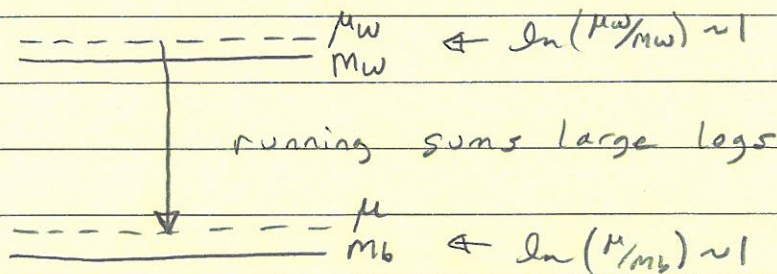 μw ← ln(μw/mw) ~ 1
mw
running sums large logs
μ
mb ← ln(μ/mb) ~ 1